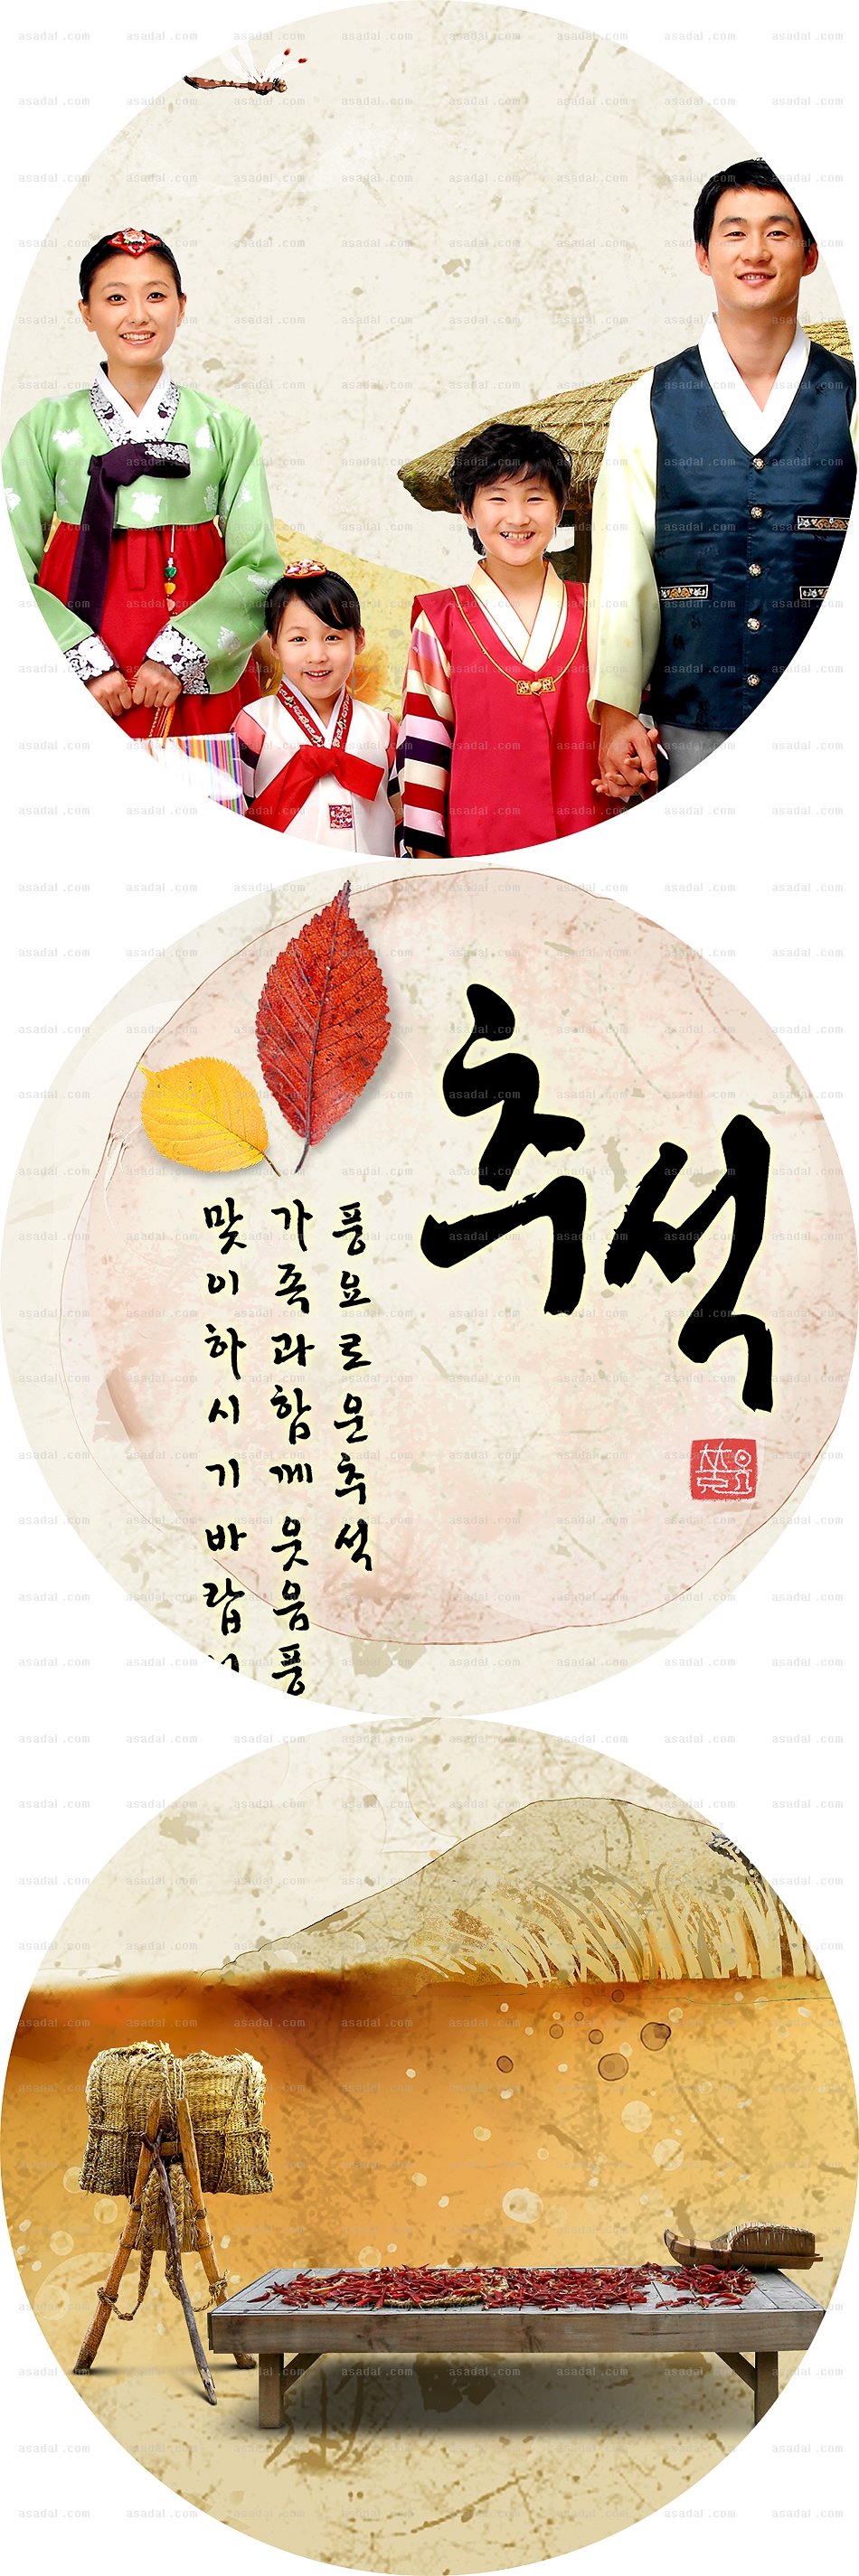 추석
풍요로운추석
가족과함께웃음풍
맞이하시기바랍
asadal.com